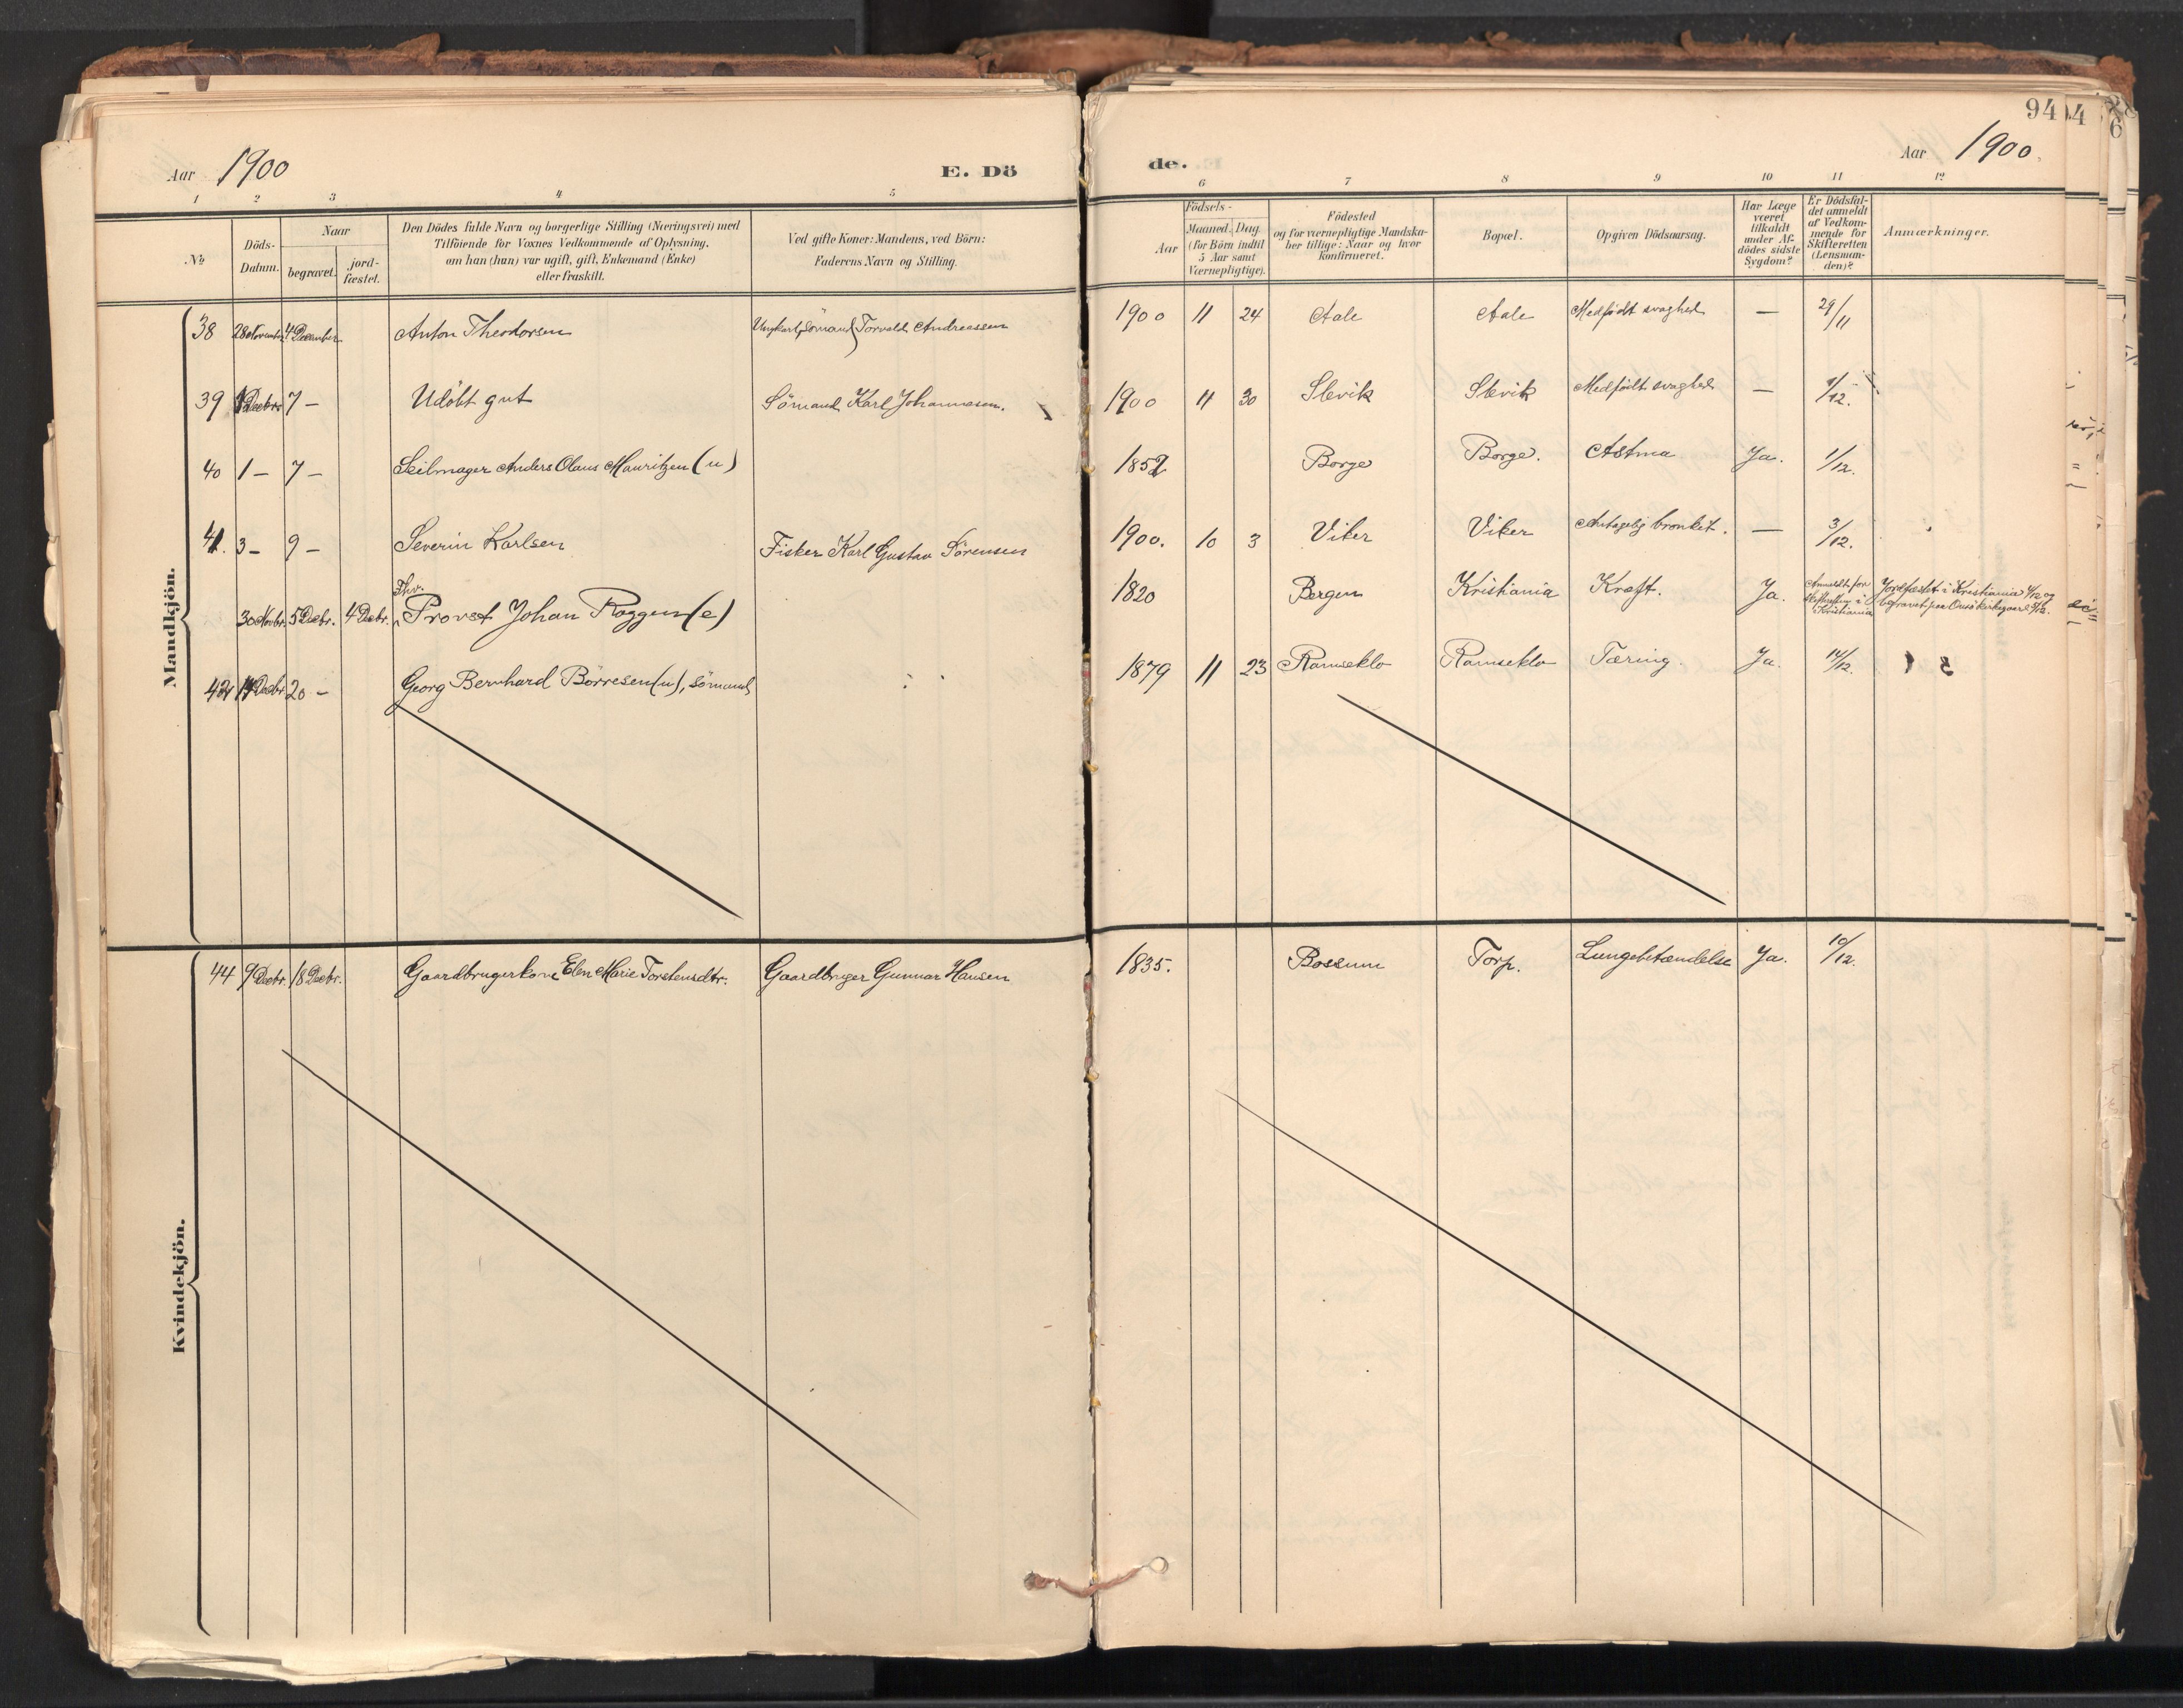 94
Aar 1900
E. Dö
de.
Aar 1900.
1 2 3 4 5 6 7 8 9 10 11 12
No
Döds-
Datum.
Naar
begravet.
jord-
fæstet.
Den Dödes fulde Navn og borgerlige Stilling (Næringsvei) med
Tilföiende for Voxnes Vedkommende af Oplysning,
om han (hun) var ugift, gift, Enkemand (Enke)
eller fraskilt.
Ved gifte Koner: Mandens, ved Börn:
Faderens Navn og Stilling.
Födsels-
Aar
Maaned.
Dag.
(for Börn indtil
5 Aar samt
Værnepligtige).
Födested
og for værnepligtige Mandska-
ber tillige: Naar og hvor
konfirmeret.
Bopæl.
Opgiven Dödsaarsag.
Har Læge
været
tilkaldt
under Af-
dödes sidste
Sygdom?
Er Dödsfal-
det anmeldt
af Vedkom-
mende for
Skifteretten
(Lensman-
den)?
Anmærkninger.
Mandkjön.
38 28 November 4 December Anton Theodorsen Ungkarl, Sömand Torvald Andreassen 1900 11 24 Aale Aale Medfödt svaghed — 29/11
39 1 Decbr. 7 — Udöbt gut Sömand Karl Johannesen. 1900 11 30 Slevik Slevik Medfödt svaghed — /12.
40 1 — 7 — Seilmager Anders Olaus Mauritzen (u) 1852 Borge Borge. Astma Ja. 1/12.
41. 3 — 9 — Severin Karlsen Fisker Karl Gustav Sörensen 1900. 10 3 Viker Viker Antagelig bronkit. — 3/12.
Fhv.
30 Novbr. 5 Decbr. 4 Decbr. Provst Johan Roggen (e) 1820 Bergen Kristiania Kræft. Ja. Anmeldt for
Skifteretten i
Kristiania
Jordfæstet i Kristiania 4/12 og
begravet paa Onsö kirkegaard 5/12.
42 14 Decbr 20 — Georg Bernhard Börresen (u), sömand 1879 11 23 Ramseklo Ramseklo Tæring. Ja. 14/12.
Kvindekjön.
44 9 Decbr. 18 Decbr. Gaardbrugerkone Elen Marie Torstensdtr. Gaardbruger Gunnar Hansen 1835. Bossum Torp. Lungebetændelse Ja. 10/12.